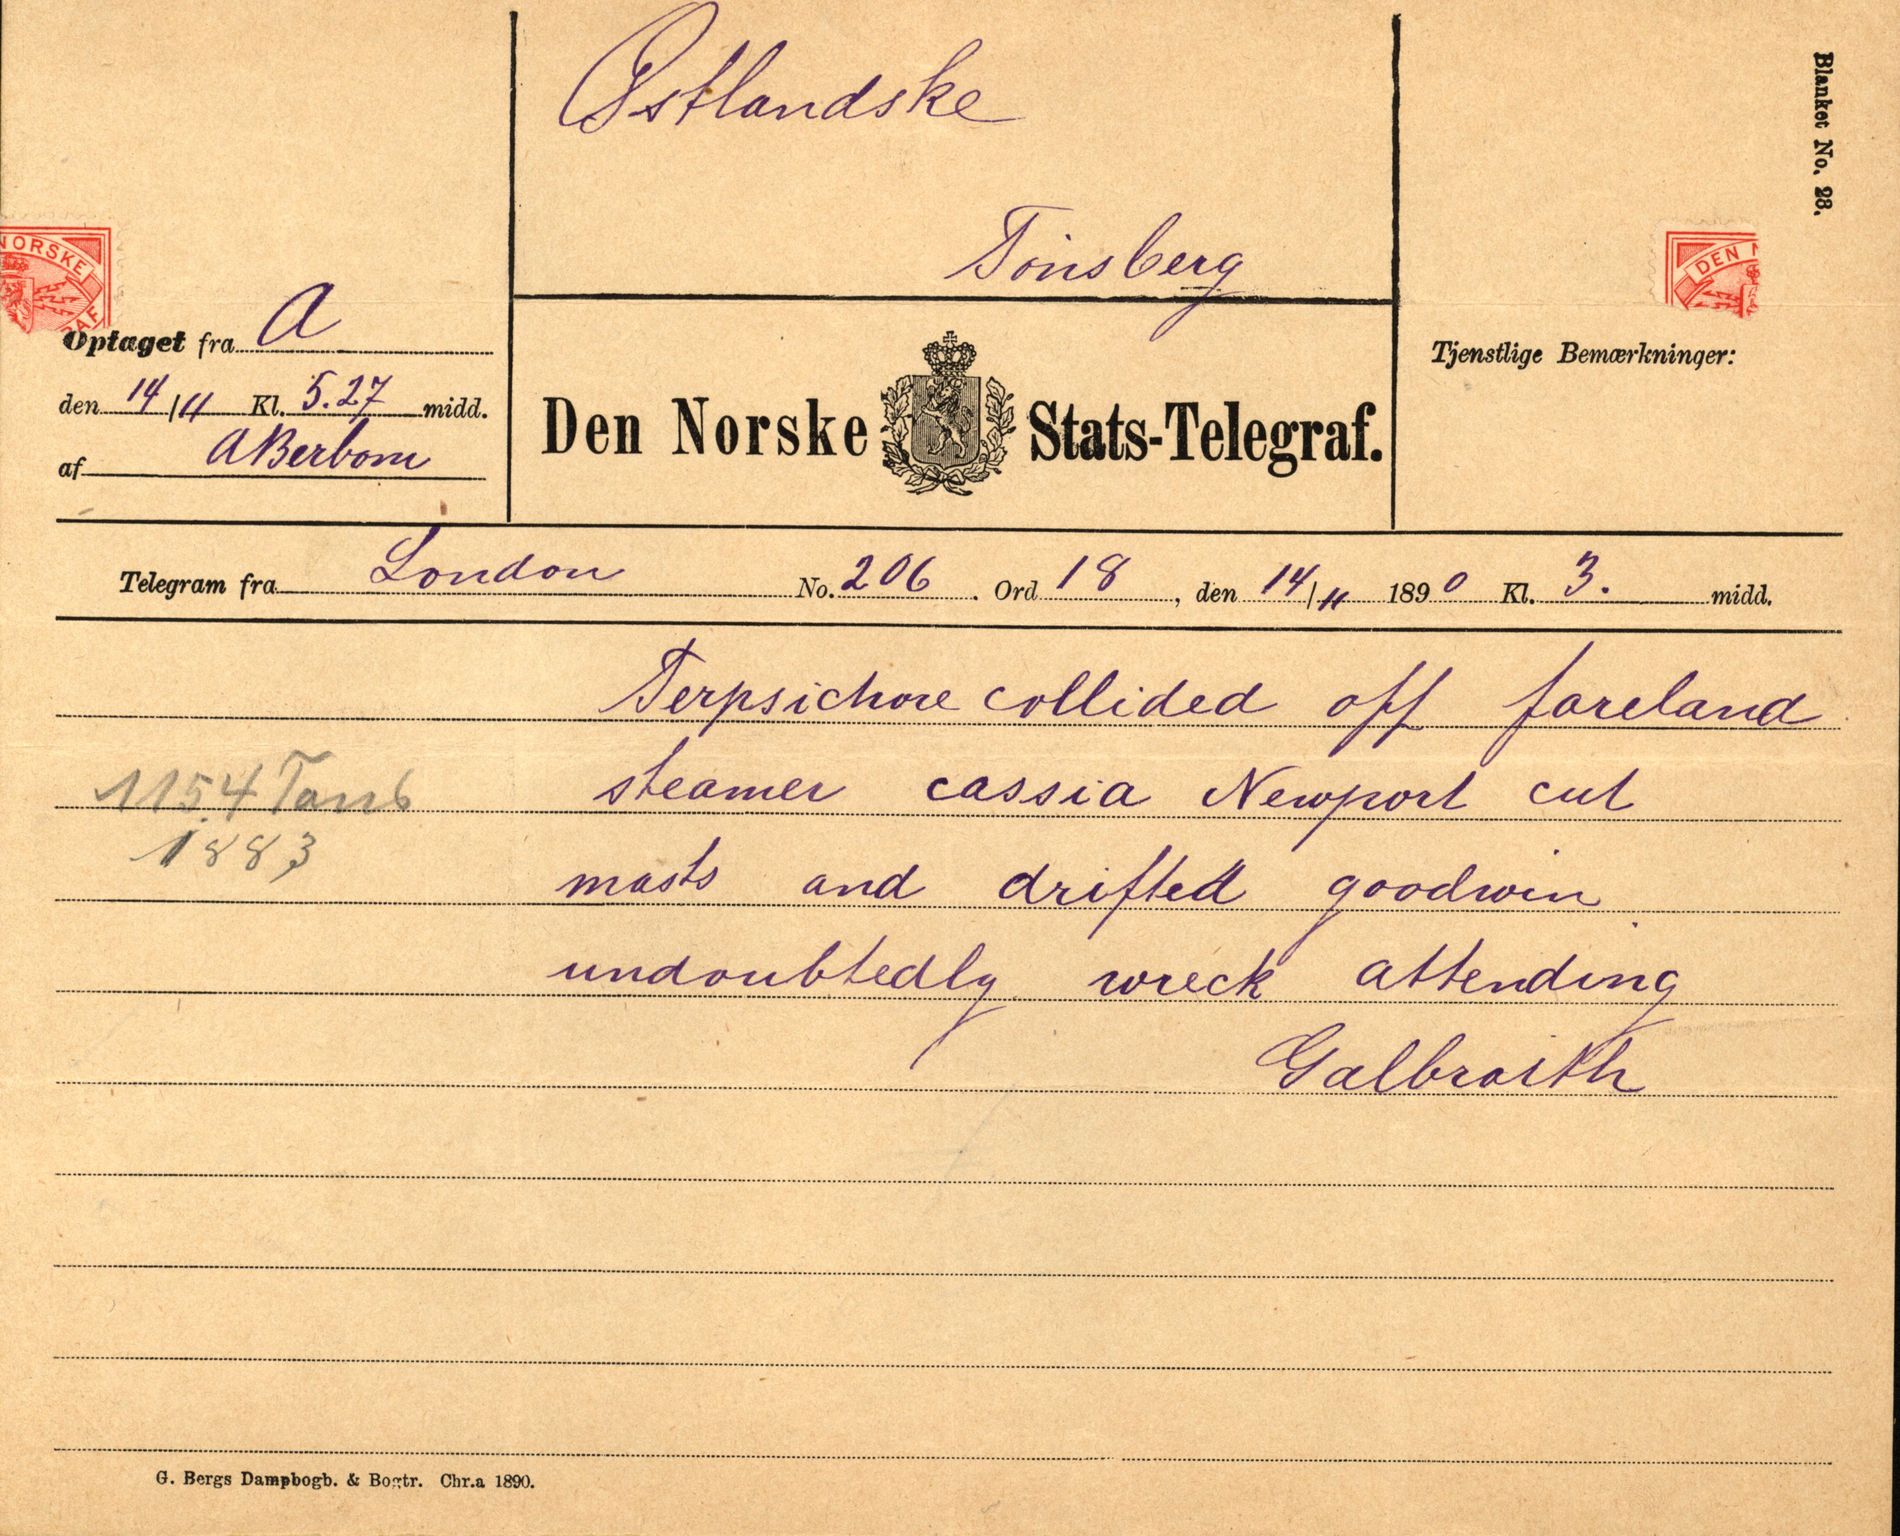 Blanket No. 28.
Østlandske
Tönsberg
NORSKE
RAF
DEN N
Optaget fra A
den 14/11 Kl. 5.27 midd.
af ABerbom
Den Norske Stats-Telegraf.
Tjenstlige Bemærkninger:
Telegram fra London No. 206. Ord 18, den 14/11 1890 Kl. 3. midd.
Terpsichore collided off foreland
steamer cassia Newport cut
masts and drifted goodwin
undoubtedly wreck attending
Galbraith
1154 Tons
1883
G. Bergs Dampbogb. & Bogtr. Chr.a 1890.